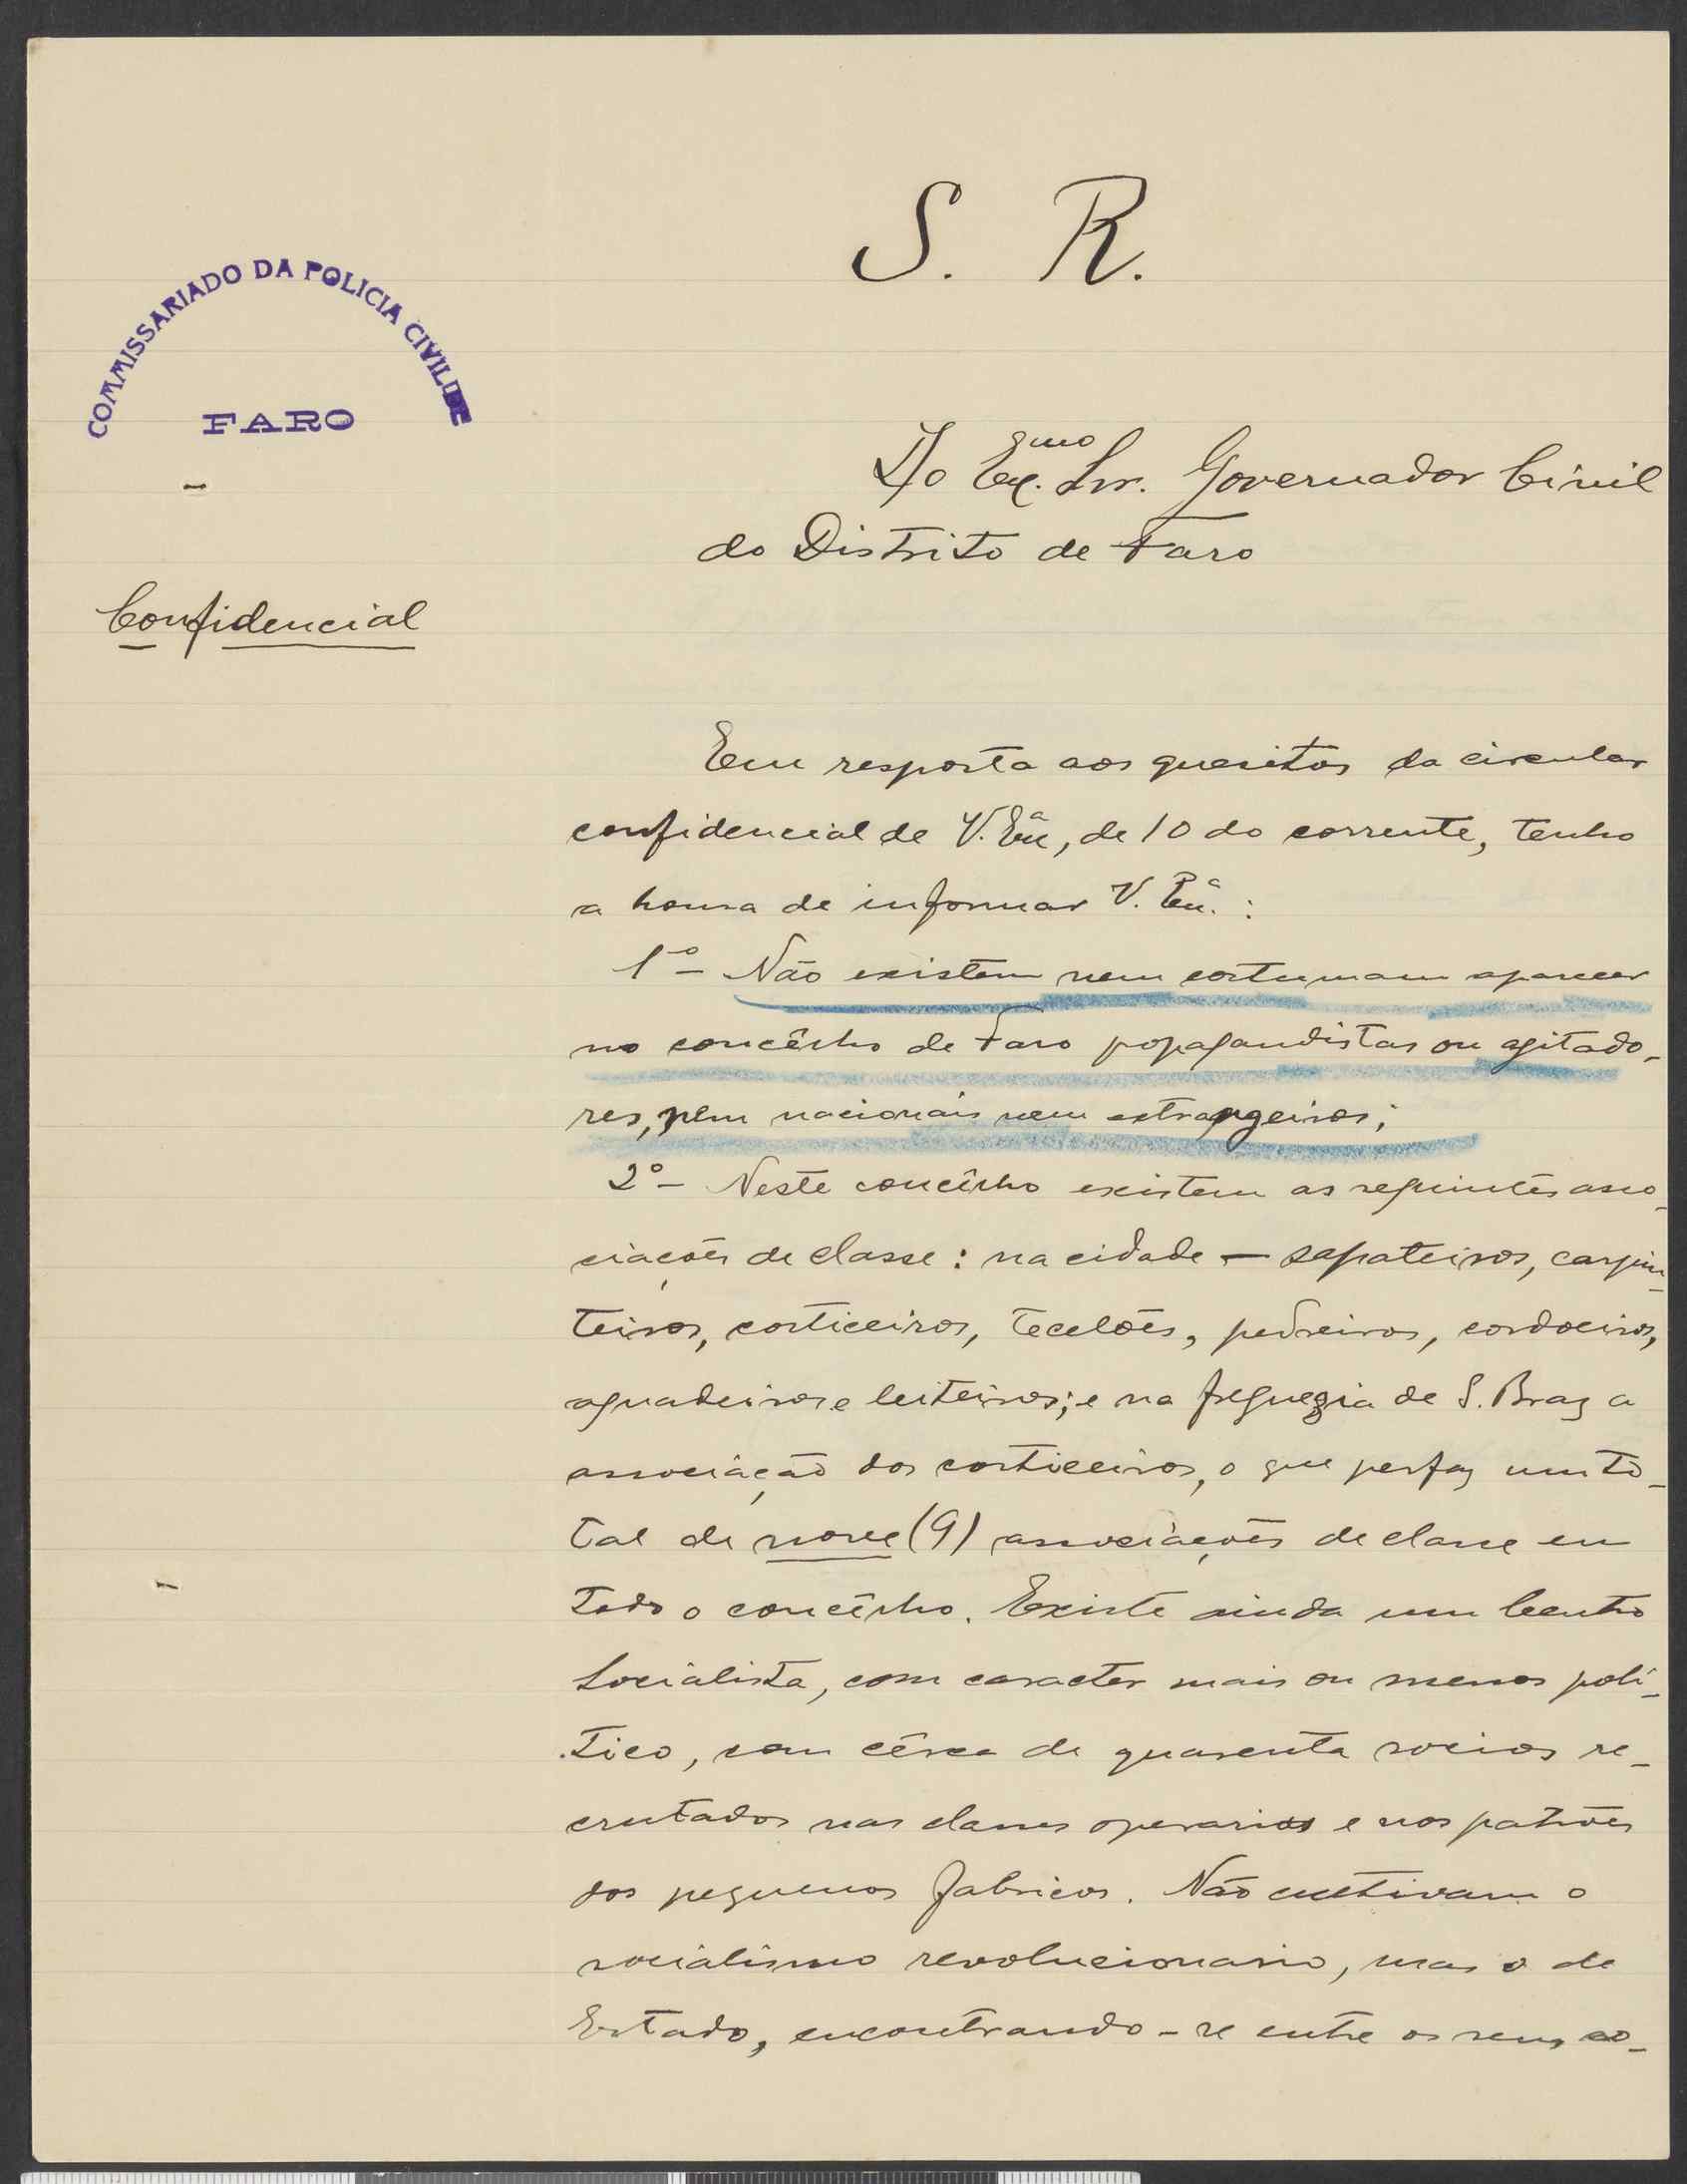 S. R.
COMMISSARIADO DA POLICIA CIVIL DE
FARO
Ao Ex.mo Snr. Governador Civil
do Distrito de Faro
Confidencial
Em resposta aos quesitos da circular
confidencial de V. Ex.ª, de 10 do corrente, tenho
a honra de informar V. Ex.ª:
1º - Não existem nem costumam aparecer
no concêlho de Faro popagandistas ou agitado-
res, nem nacionais nem estrangeiros;
2º - Neste concêlho existem as seguintes asso-
ciações de classe: na cidade - sapateiros, carpin-
teiros, corticeiros, tecelões, pedreiros, cordoeiros,
aguadeiros e leiteiros; e na freguezia de S. Braz a
associação dos corticeiros, o que perfaz um to-
tal de nove (9) associações de classe em
todo o concêlho. Existe ainda um Centro
Socialista, com caracter mais ou menos poli-
tico, com cêrca de quarenta socios re-
crutados nas classes operarias e nos patrões
dos pequenos fabricos. Não cultivam o
socialismo revolucionario, mas o de
Estado, encontrando-se entre os seus so-